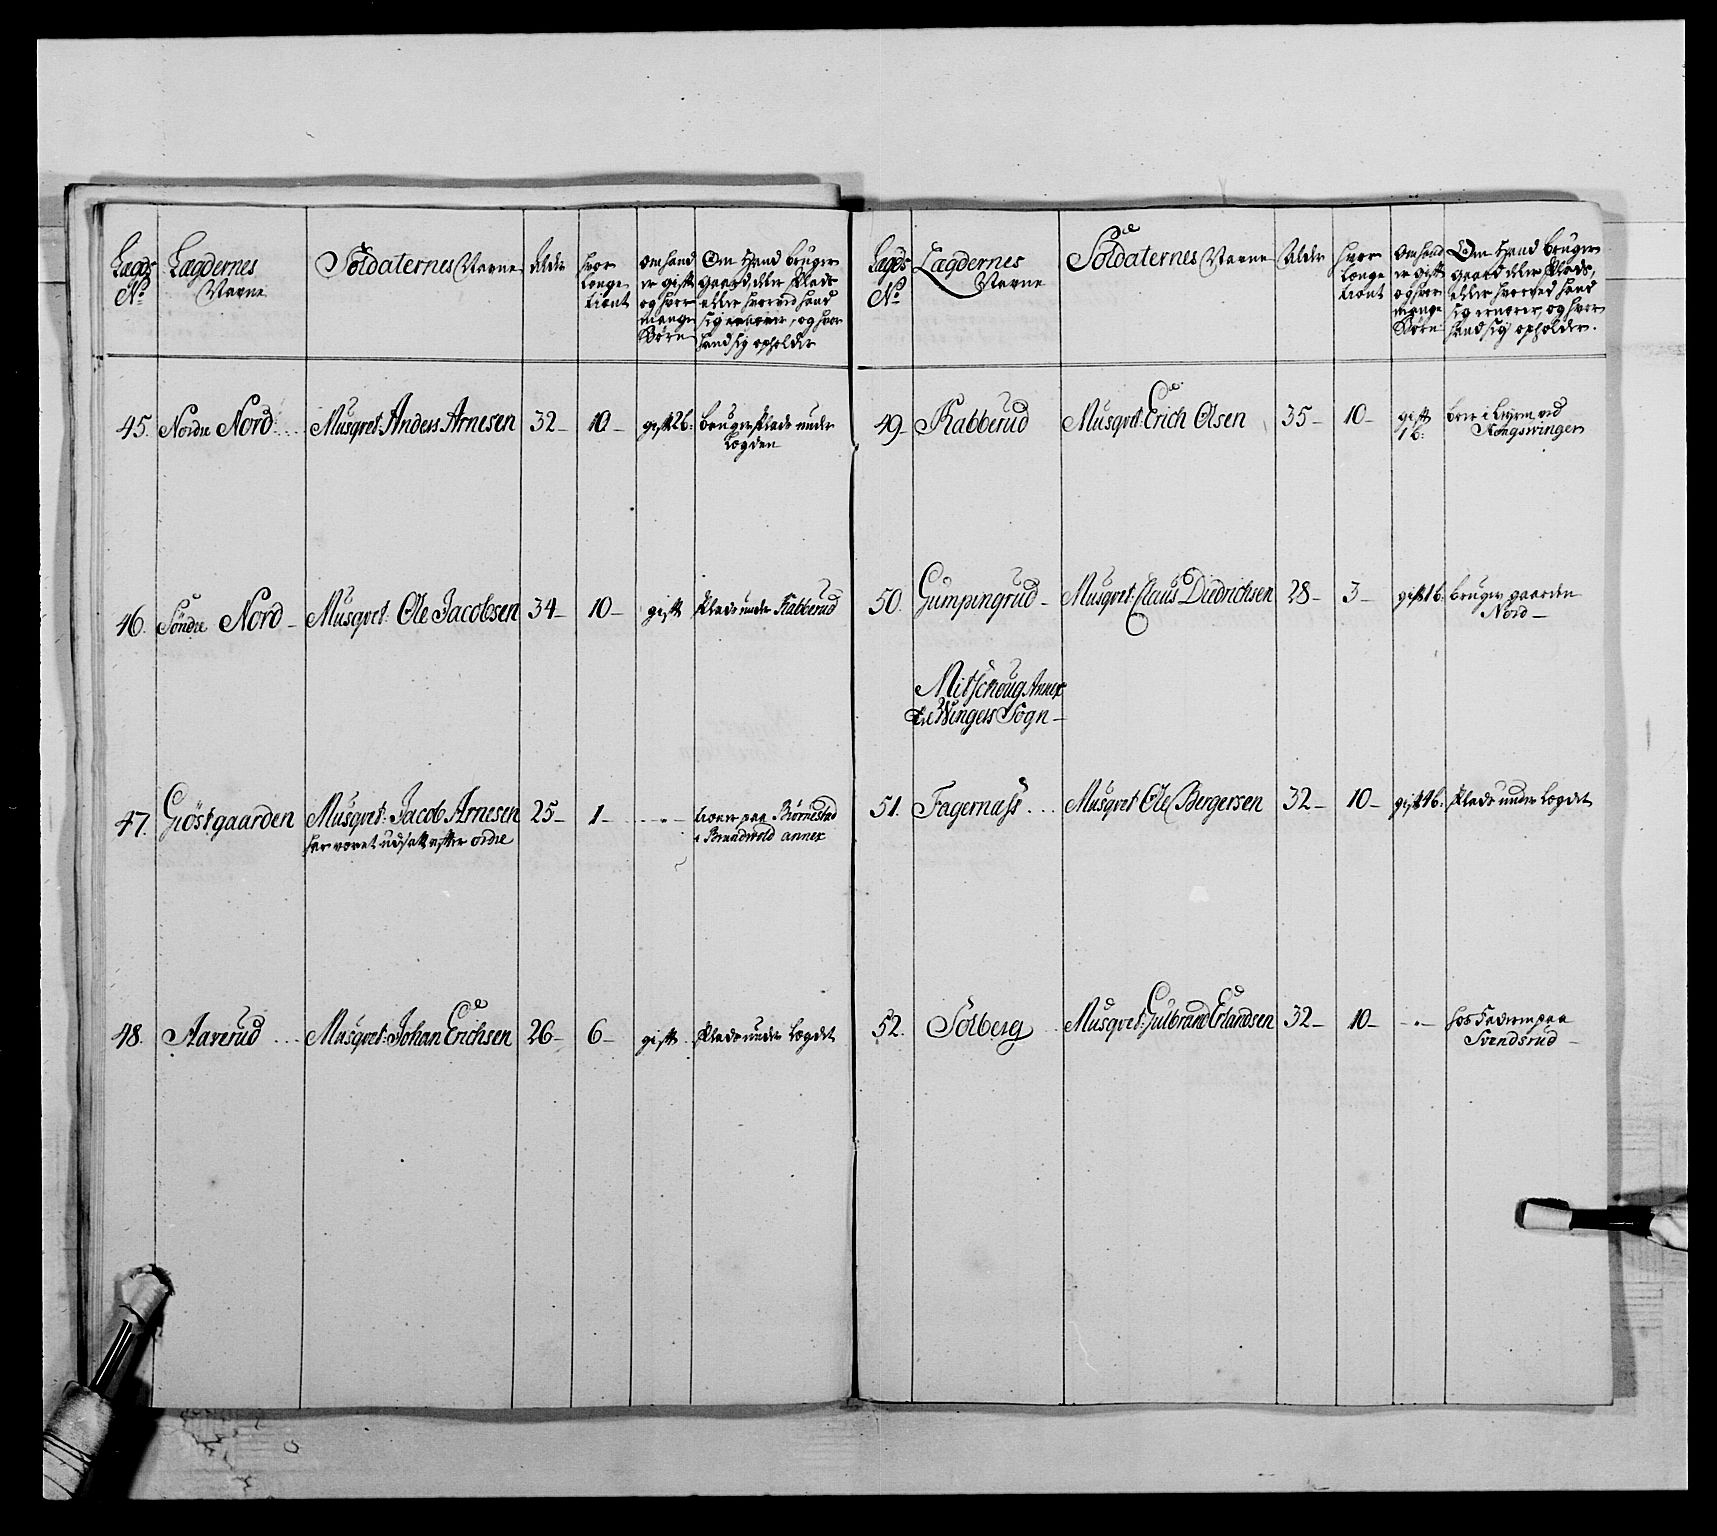 Lægds Lægdernes Soldaternes Navne Alder hvor om hand Om Hand bruger
No Navne længe er gift gaard, eller Plads
tient og hvor eller hvorved hand
mange sig ernærer, og hvor
Børn hand sig opholder
45. Nordre Nord Musqvet: Anders Arnesen 32 – 10 – gift 2 b: bruger Plads under
Lægden
46. Søndre Nord – Musqvet: Ole Jacobsen 34 – 10 – gift Plads under Rabberud
47. Giöstgaarden Musqvet: Jacob Arnesen 25 – 1 – – „ – tiener paa Biørnestad
har været udsatt efter ordre i Brandwold annex
48. Aaverud Musqvet: Johan Erichsen 26 – 6 – gift Plads under Lægdet
Lægds Lægdernes Soldaternes Navne Alder hvor Om hand Om Hand bruger
No Navne længe er gift gaard eller Plads,
tient og hvor eller hvorved hand
mange sig ernærer, og hvor
Børn hand sig opholder.
49 – Rabberud Musqvet: Erich Olsen 35 – 10 – gift boer i Leyren ved
1 b: Kongswinger
50. Gumpingrud – Musqvet: Claus Diedrichsen 28 – 3 – gift 1 b: bruger gaarden
Nord –
Mitschoug Annex
til Wingers Sogn –
51. Fagernæss Musqvet Ole Bergersen 32 – 10 – gift 4 b: Plads under Lægdet
52. Solberg Musqvet: Gulbrand Erlandsen 32 – 10 – – „ – hos Faderen paa
Svendsrud –